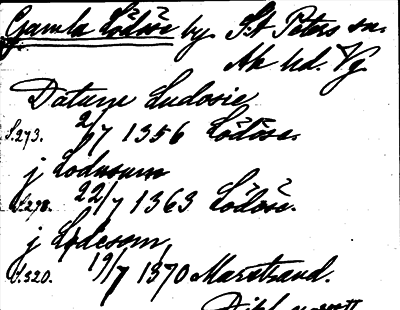 Gamla Lödöse by, S:t Peters sn.
Ale hd. Vg.
Datum Ludosie
S.273. 2/7 1356 Lödöse.
j Lodusum
S.298. 22/7 1363 Lödöse.
j Lodesom,
S.320. 19/7 1370 Marstrand.